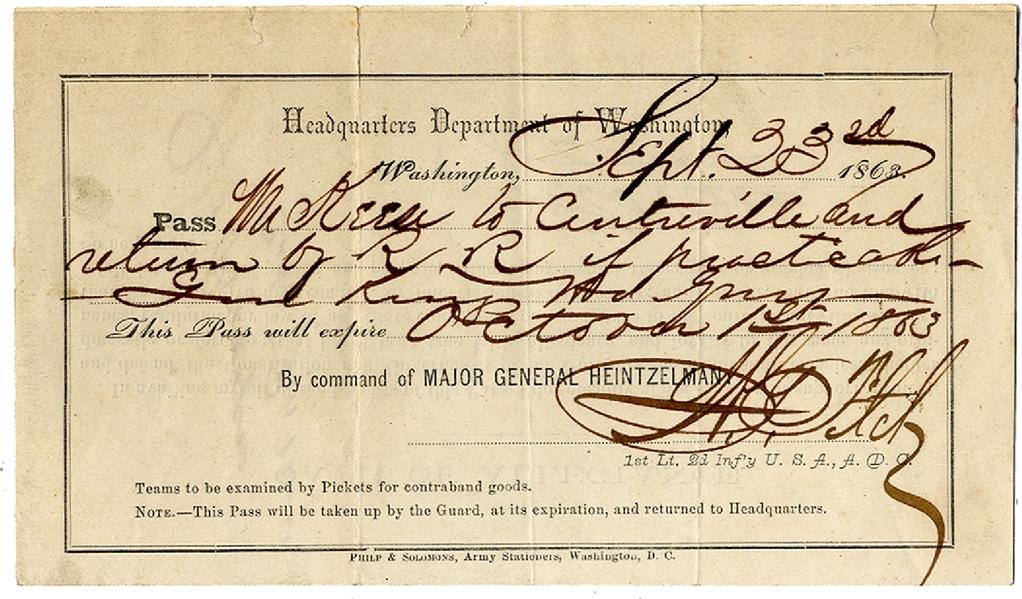 Headquarters Department of Washington,
Washington, Sept. 23rd 1863.
Pass Mr Keese to Centreville and
return by R R if practicable
Genl Kings Hd Qrs
This Pass will expire October 1st 1863
By command of MAJOR GENERAL HEINTZELMAN,
1st Lt, 2d Inf'y U. S. A., A. D. C.
Teams to be examined by Pickets for contraband goods.
NOTE.—This Pass will be taken up by the Guard, at its expiration, and returned to Headquarters.
PHILP & SOLOMONS, Army Stationers, Washington, D. C.